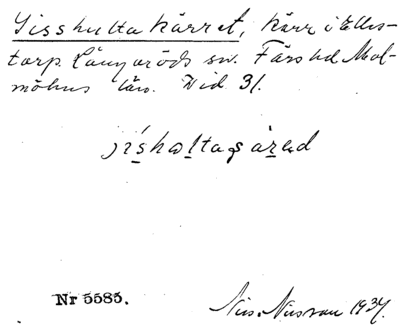 Jisshultakärret, kärr i Ellis-
torp Långaröds sn. Färs hd Mal-
möhus län. Wid 31.
Nr 5585.
Nils Nilsson 1934.